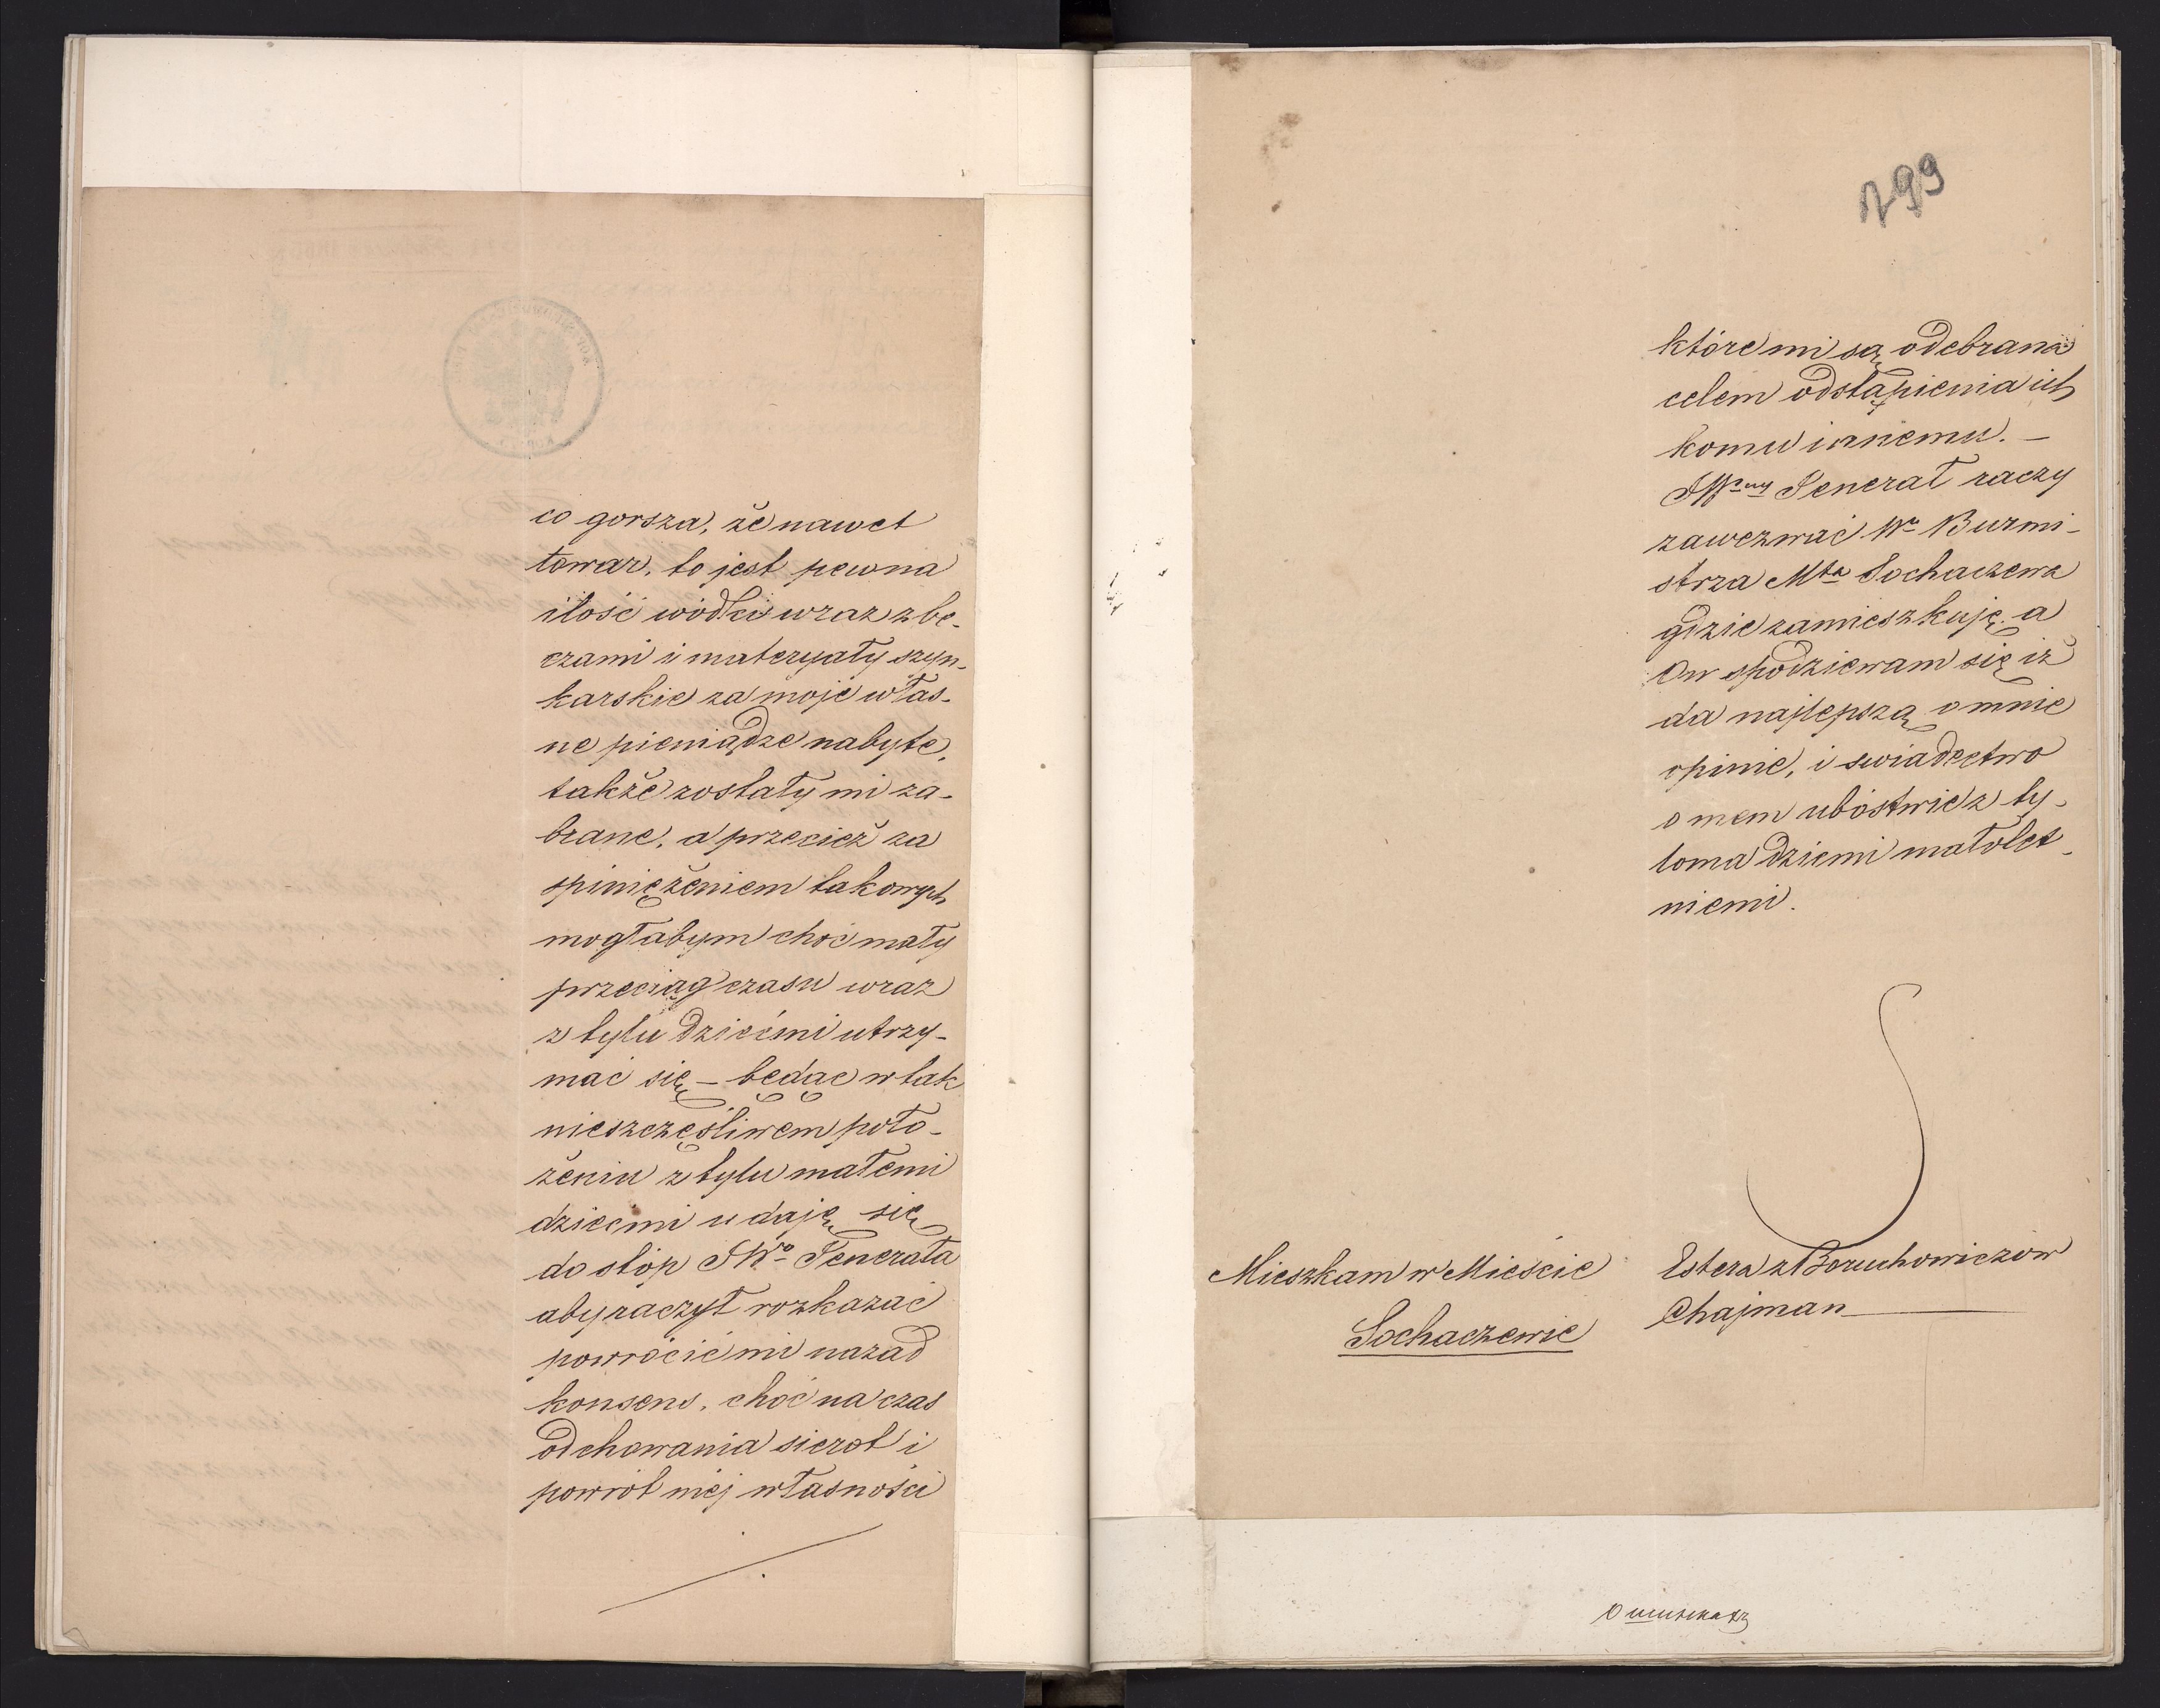 co gorsza, że nawet
towar, to jest pewna
ilość wódki wraz z be-
czami i materyały szyn-
karskie za moje włas-
ne pieniądze nabyte,
także zostały mi za-
brane, a przecież za
spiniężeniem takowych
mogłabym choć mały
przeciąg czasu wraz
z tylu dziećmi utrzy-
mać się – będąc w tak
nieszczęśliwem poło-
żeniu z tylu małemi
dziećmi udaję się
do stóp JWo Jenerała
aby raczył rozkazać
powrócić mi nazad
konsens, choć na czas
odchowania sierot i
powrót méj własności
299
które mi są odebrane
celem odstąpienia ich
komu innemu. –
JWny Jenerał raczy
zawezwać Wo Burmi-
strza Mta Sochaczewa
gdzie zamieszkuję, a
On spodziewam się iż
da najlepszą o mnie
opinie, i swiadectwo
o mem ubóstwie z ty-
loma dziemi małolet-
niemi.
Mieszkam w Mieście
Sochaczewie
Estera z Boruchowiczów
Chajman